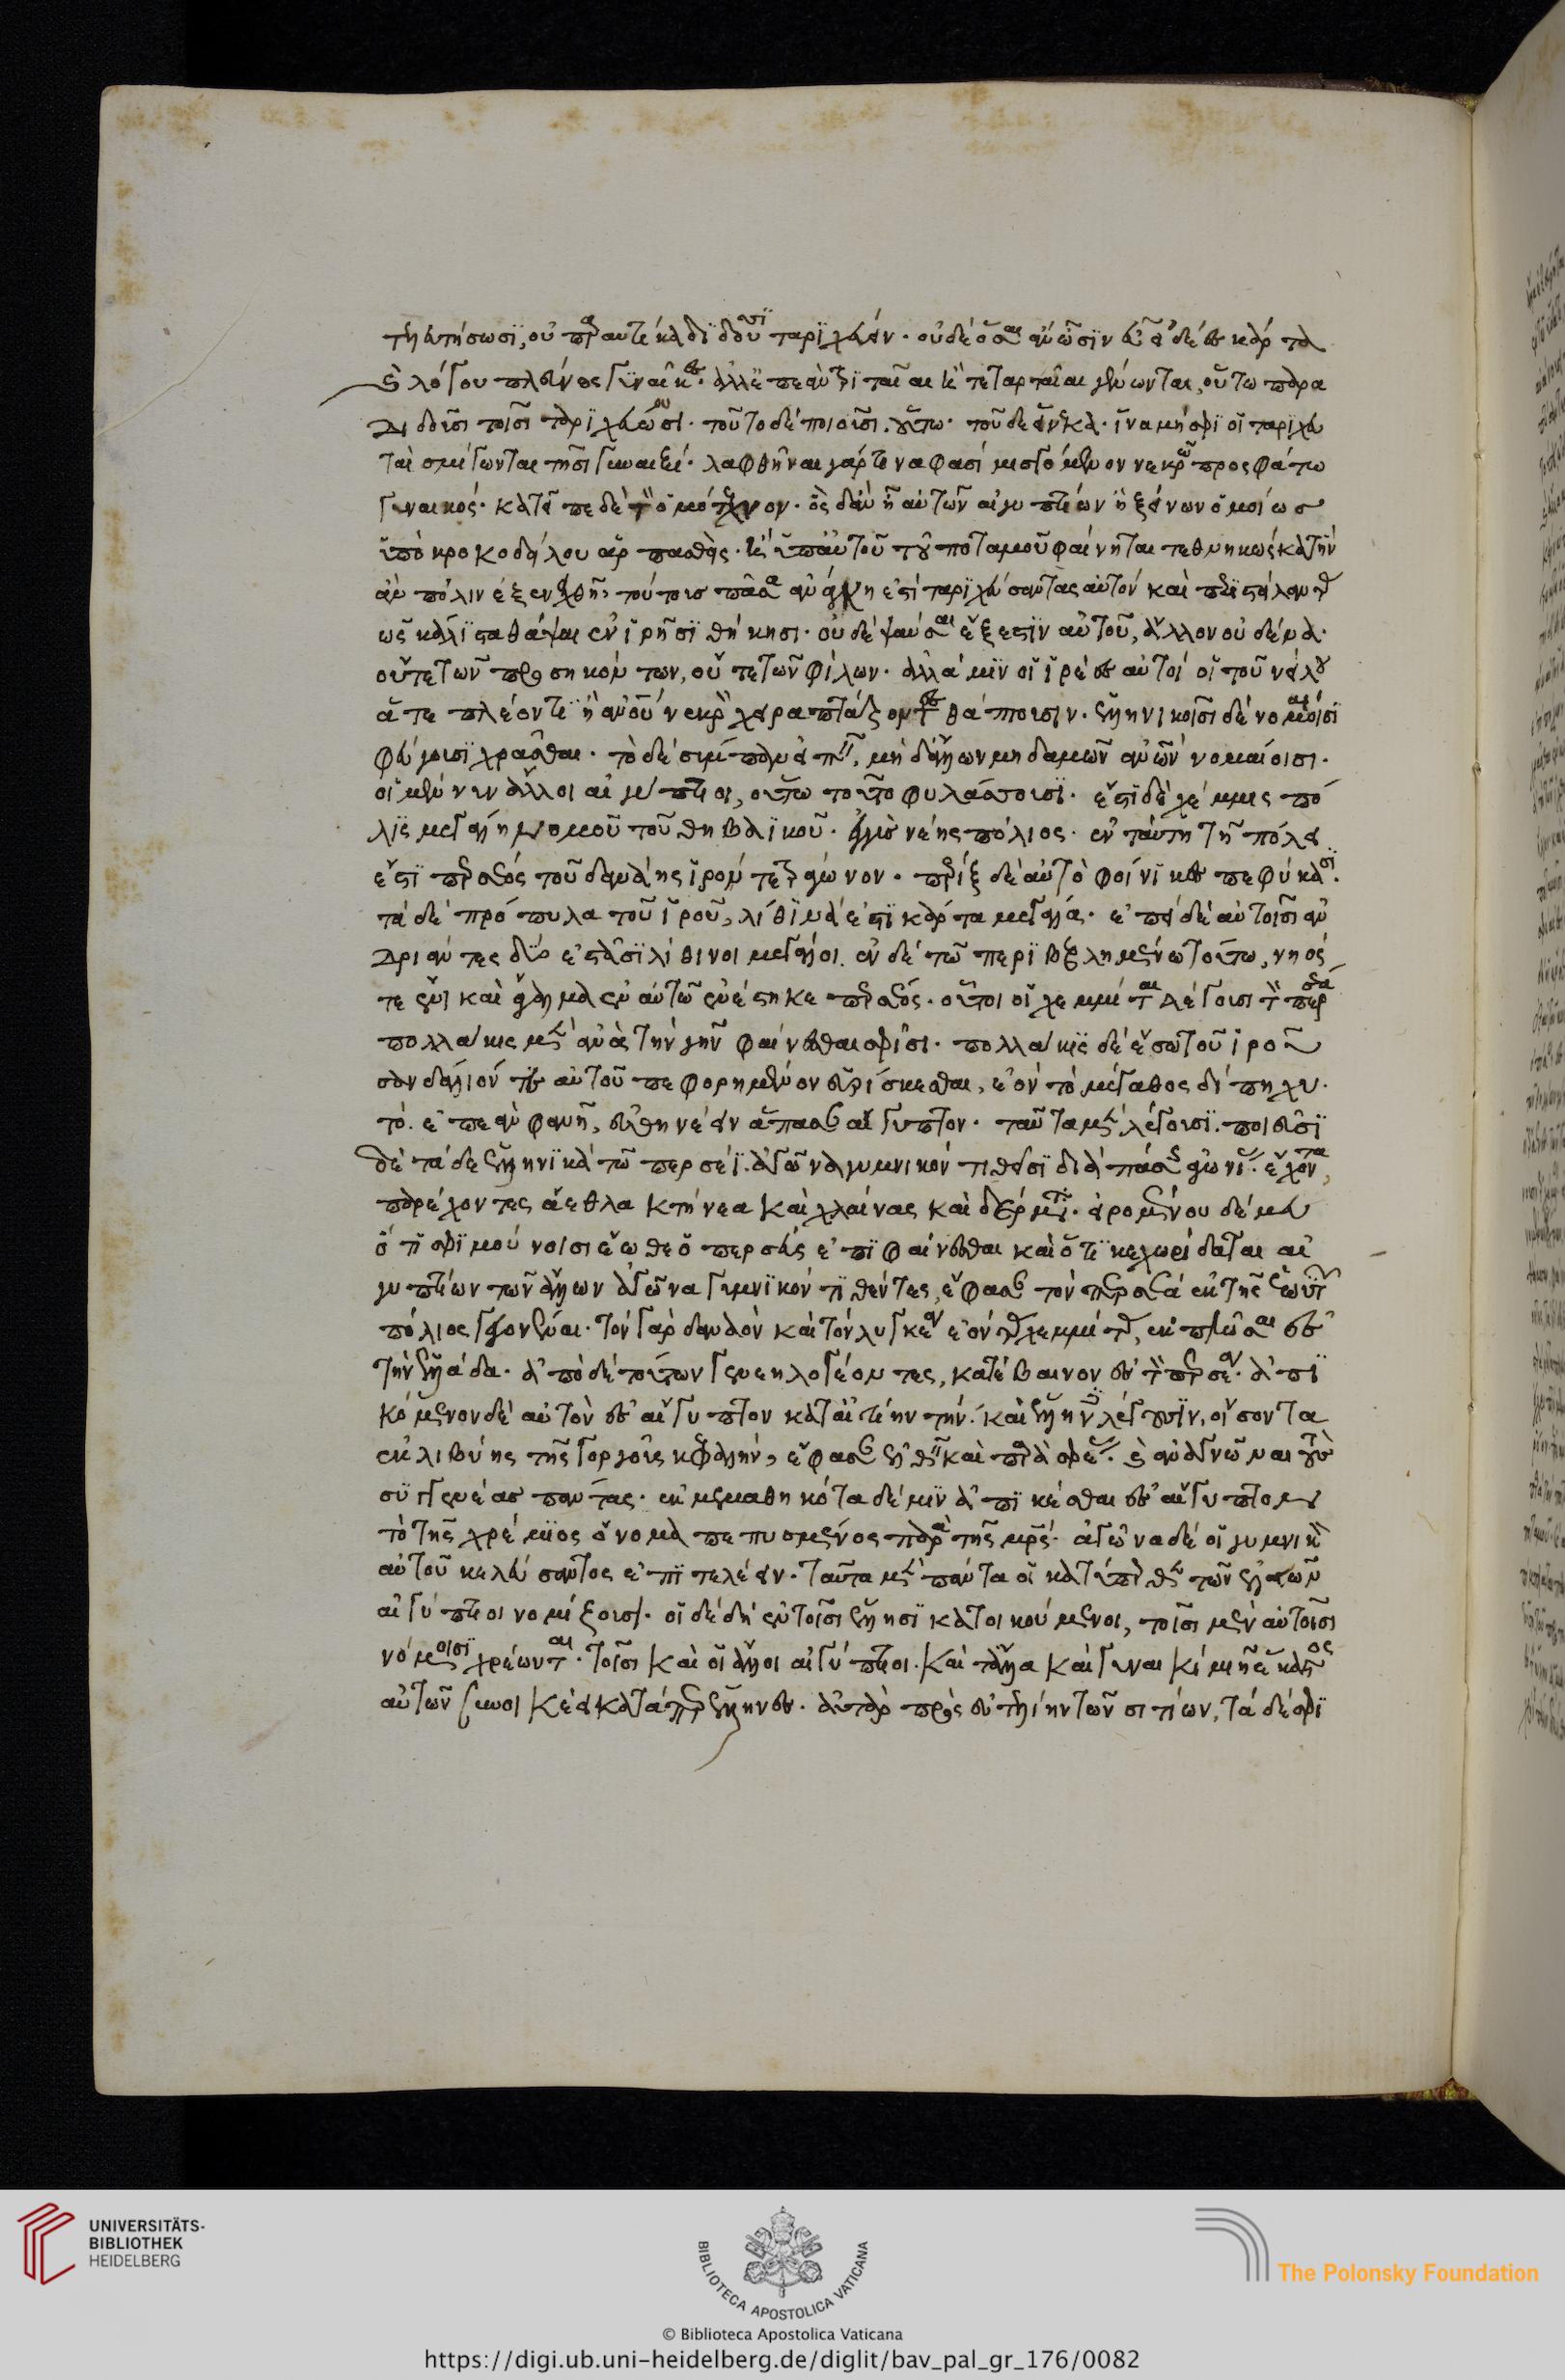 τευτήσωσϊ, οὐ παραυτίκα διδοῦσϊ ταριχεύειν. οὐδὲ ὅσαι ἂν ὦσϊν εὐειδέες κάρτα
καὶ λόγου πλεῦνος γυναῖκες. ἀλλ' ἐπεὰν τρϊταῖαι ἢ τεταρταῖαι γένωνται, οὕτω παρα
διδοῦσι τοῖσι ταρϊχεύουσι. τοῦτο δὲ ποιοῦσι οὕτω. τοῦδε εἵνεκα. ἵνα μή σφϊ οἱ ταρϊχευ
ταὶ σμίγωνται τῇσι γυναιξί. λαφθῆναι γάρ τινα φασὶ μισγόμενον νεκρῷ προσφάτω
γυναικός. κατεῖπε δὲ τὸν ὁμότεχνον. ὃς δ' ἂν ἢ αὐτῶν αἰγυπτίων ἢ ξείνων ὁμοίως
ὑπὸ κροκοδείλου ἁρπασθεὶς. ἢ ὑπ' αὐτοῦ τοῦ ποταμοῦ φαίνηται τεθνηκώς κατ' ἣν
ἂν πόλιν ἐξενειχθῆ, τούτους πᾶσα ἀνάγκη ἐστὶ ταρϊχεύσαντας αὐτὸν καὶ περιστείλαντας
ὡς κάλλϊστα θάψαι ἐν ἱρῆσϊ θήκησι. οὐδὲ ψαῦσαι ἔξεστϊν αὐτοῦ, ἄλλον οὐδένα.
οὔτε τῶν προσηκόντων, οὔτε τῶν φίλων. ἀλλά μϊν οἱ ἱρέες αὐτοὶ οἱ τοῦ νείλου
ἅτε πλέον τϊ ἢ ἀνθρώπου νεκρὸν χειραπτάζοντες θάπτουσιν. ἑλληνικοῖσι δὲ νομαίοισϊ
φεύγουσϊ χρᾶσθαι. τὸ δὲ σύμπαν εἰπεῖν, μὴ δ' ἄλλων μηδαμῶν ἀνθρώπων νομαίοισι.
οἱ μέν νυν ἄλλοι αἰγύπτιοι, οὕτω τοῦτο φυλάσσουσϊ. ἔστϊ δὲ χέμμις πό
λϊς μεγάλη νομοῦ τοῦ θηβαϊκοῦ. ἐγγὺς νέης πόλιος. ἐν ταύτη τῆ πόλει
ἔστϊ περσέος τοῦ δανάης ἱρόν τετράγωνον. πέριξ δὲ αὐτὸ φοίνικες πεφύκασϊ.
τὰ δὲ πρόπυλα τοῦ ἱροῦ, λίθϊνά ἐστϊ κάρτα μεγάλα. ἐπὶ δὲ αὐτοῖσι ἀν
δριάντες δύο ἑστᾶσϊ λίθινοι μεγάλοι. ἐν δὲ τῶ περιβεβλημένω τούτω, νηός
τε ἔνι καὶ ἄγαλμα ἐν αὐτῶ ἐνέστηκε περσέος. οὗτοι οἱ χεμμῖται λέγουσι τὸν περσέα
πολλάκις μὲν ἀνὰ τὴν γῆν φαίνεσθαι σφίσι. πολλάκϊς δὲ ἔσω τοῦ ἱροῦ
σανδάλιόν τε αὐτοῦ πεφορημένον εὑρίσκεσθαι, ἐὸν τὸ μέγαθος δίπηχυ.
τὸ ἐπεὰν φανῆ, εὐθηνέειν ἅπασαν αἴγυπτον. ταῦτα μὲν λέγουσϊ. ποιεῦσϊ
δὲ τάδε ἑλληνϊκὰ τῶ περσέϊ. ἀγῶνα γυμνικὸν τιθεῖσϊ διὰ πάσης ἀγωνίης ἔχοντα,
παρέχοντες ἄεθλα κτήνεα καὶ χλαίνας καὶ δέρματα. εἰρομένου δέ μευ
ὅ τι σφϊ μούνοισι ἔωθε ὁ περσεὺς ἐπϊφαίνεσθαι καὶ ὅ τι κεχωρίδαται αἰ
γυπτίων τῶν ἄλλων ἀγῶνα γυμνϊκὸν τϊθέντες, ἔφασαν τὸν περσέα ἐκ τῆς ἑωυτῶν
πόλιος γεγονέναι. τὸν γὰρ δαναὸν καὶ τὸν λυγκέα ἐόντας χεμμίτας, ἐκπλῶσαι ἐς
τὴν ἑλλάδα. ἀπὸ δὲ τούτων γενεηλογέοντες, κατέβαινον ἐς τὸν περσέα. ἀπϊ
κόμενον δὲ αὐτὸν ἐς αἴγυπτον κατ' αἰτίην τὴν καὶ ἕλληνες λέγουσϊν, οἴσοντα
ἐκ λιβύης τῆς γοργοῦς κεφαλήν, ἔφασαν ἐλθεῖν καὶ παρὰ σφέας. καὶ ἀναγνῶναι τοὺς
συγγενέας πάντας. ἐκμεμαθηκότα δέ μιν ἀπϊκέσθαι ἐς αἴγυπτον
τὸ τῆς χέμμϊος ὄνομα πεπυσμένος παρὰ τῆς μητρός. ἀγῶνα δέ οἱ γυμνικὸν
αὐτοῦ κελεύσαντος ἐπϊτελέειν. ταῦτα μὲν πάντα οἱ κατύπερθε τῶν ἑλέων
αἰγύπτιοι νομίζουσι. οἱ δὲ δὴ ἐν τοῖσι ἕλησϊ κατοικούμενοι, τοῖσι μὲν αὐτοῖσι
νόμοισϊ χρέωνται. τοῖσι καὶ οἱ ἄλλοι αἰγύπτιοι. καὶ τἆλλα καὶ γυναικὶ μιῆ ἕκαστος
αὐτῶν συνοικέει κατάπερ ἕλληνες. ἀτὰρ πρὸς εὐτελίην τῶν σιτίων, τάδε σφϊ
UNIVERSITÄTS-
BIBLIOTHEK
HEIDELBERG
BIBLIOTECA APOSTOLICA VATICANA
The Polonsky Foundation
© Biblioteca Apostolica Vaticana
https://digi.ub.uni-heidelberg.de/diglit/bav_pal_gr_176/0082